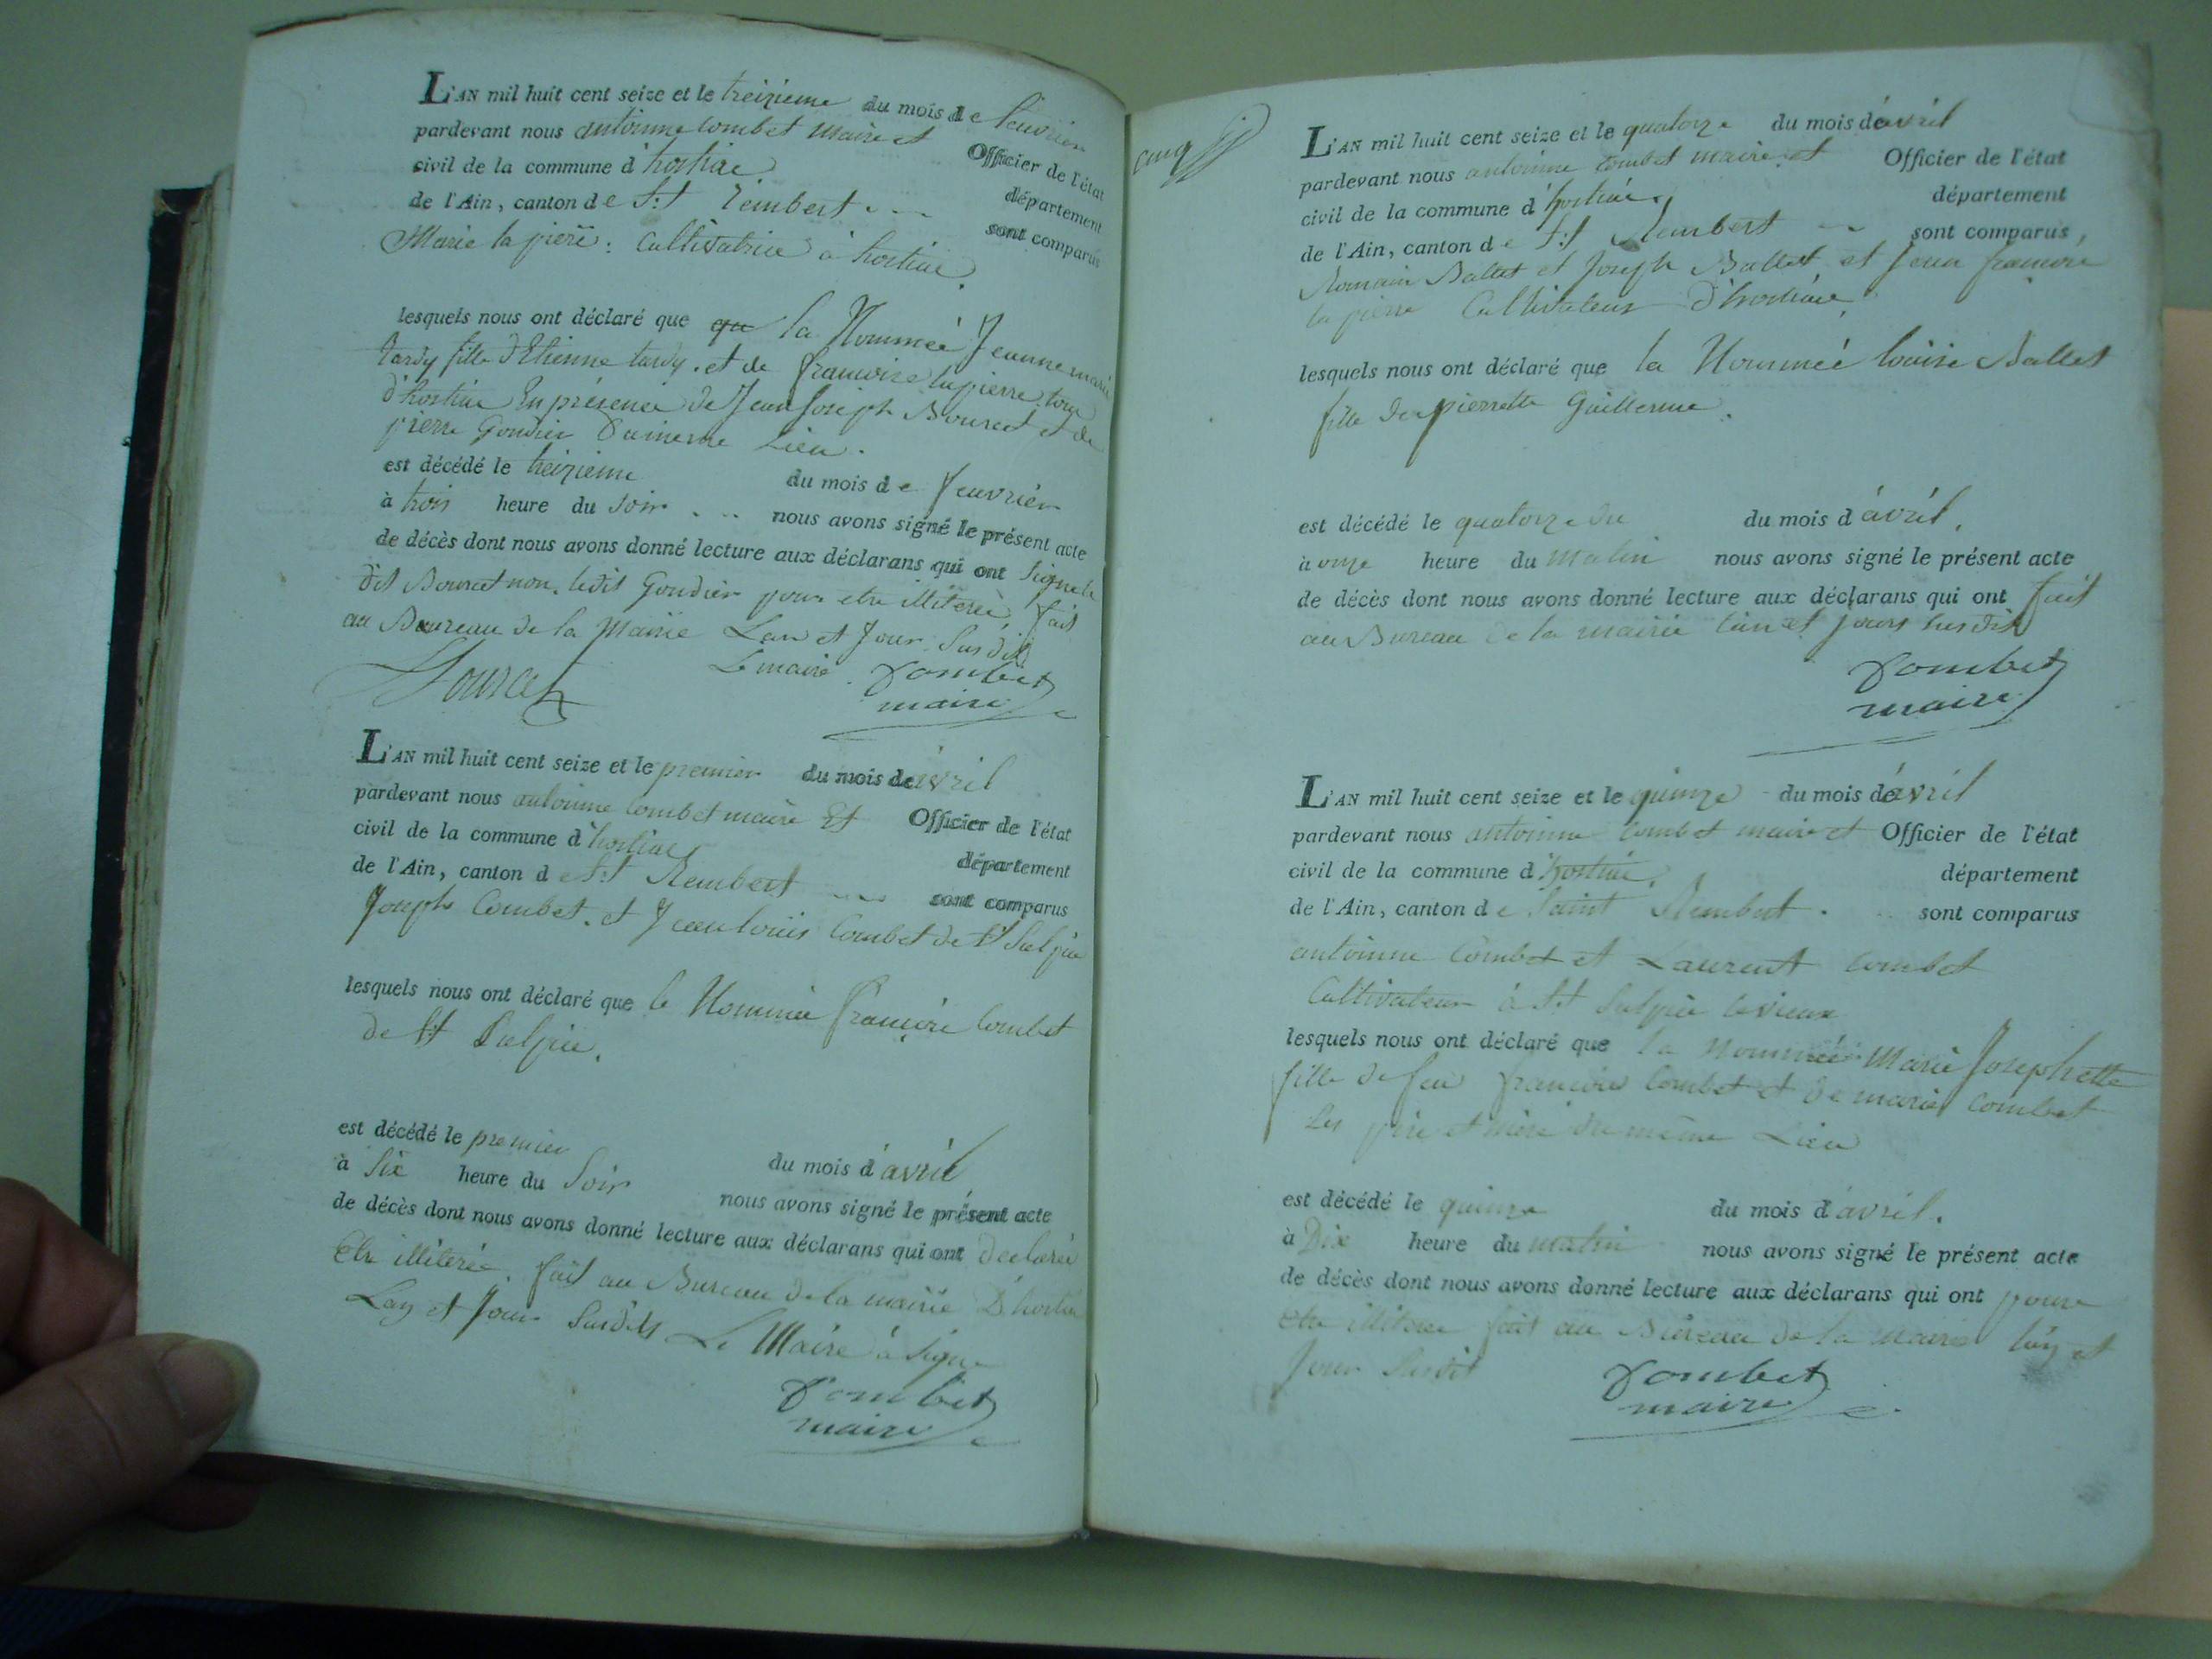 L'AN mil huit cent seize et le treizieme du mois de feuvrier
pardevant nous antoinne Combet maire et Officier de l'état
civil de la commune d'hostiae département
de l'Ain, canton de St Rembert sont comparus
Marie la pierre : Cultivatrice à hostiae.
lesquels nous ont déclaré que la Nommée Jeanne marie
tardy fille d'Etienne tardy, et de francoise lapierre tous
d'hostiae En présence de Jean Joseph Bourcet et de
pierre Goudier du meme Lieu.
est décédé le treizieme du mois de feuvrier
à trois heure du soir nous avons signé le présent acte
de décès dont nous avons donné lecture aux déclarans qui ont signé le
dit Bourcet non, ledit Goudier pour etre illiteré, fait
au Baureau de la Mairie Lan et Jour Susdits
Le maire. Combet
Bourcet maire
L'AN mil huit cent seize et le premier du mois de avril
pardevant nous antoinne Combet maire Et Officier de l'état
civil de la commune d'hostiae département
de l'Ain, canton de St Rembert sont comparus
Joseph Combet, et Jean louis Combet de St Sulpice
lesquels nous ont déclaré que le Nommée francoise Combet
de St Sulpice.
est décédé le premier du mois d'avril
à Six heure du Soir nous avons signé le présent acte
de décès dont nous avons donné lecture aux déclarans qui ont declarée
Etre illiteré, fait au Bureau de la mairie D'hostiae
Lan et Jour Susdits Le Maire à signe
Combet
maire
cinq
L'AN mil huit cent seize et le quatorze du mois de avril
pardevant nous antoinne Combet maire et Officier de l'état
civil de la commune d'hostiae département
de l'Ain, canton de St Rembert sont comparus,
Romain Ballet et Joseph Ballet, et Jean francois
la pierre Cultivateur D'hostiae,
lesquels nous ont déclaré que la Nommée louise Ballet
fille de pierrette Guillerme.
est décédé le quatorze du du mois d'avril,
à onze heure du matin nous avons signé le présent acte
de décès dont nous avons donné lecture aux déclarans qui ont fait
au Bureau de la mairie lan et jours susdits
Combet
maire
L'AN mil huit cent seize et le quinze du mois de avril
pardevant nous antoinne Combet maire et Officier de l'état
civil de la commune d'hostiae, département
de l'Ain, canton de Saint Rembert. sont comparus
antoinne Combet et Laurent Combet
Cultivateur à St Sulpice le vieux
lesquels nous ont déclaré que la nommée Marie Josephette
fille de feu francois Combet et de marie Combet
Ses père et mère du même Lieu
est décédé le quinze du mois d'avril.
à Dix heure du matin nous avons signé le présent acte
de décès dont nous avons donné lecture aux déclarans qui ont pour
Etre illitere fait au Bureau de la Mairie lan et
Jour Susdit Combet
maire